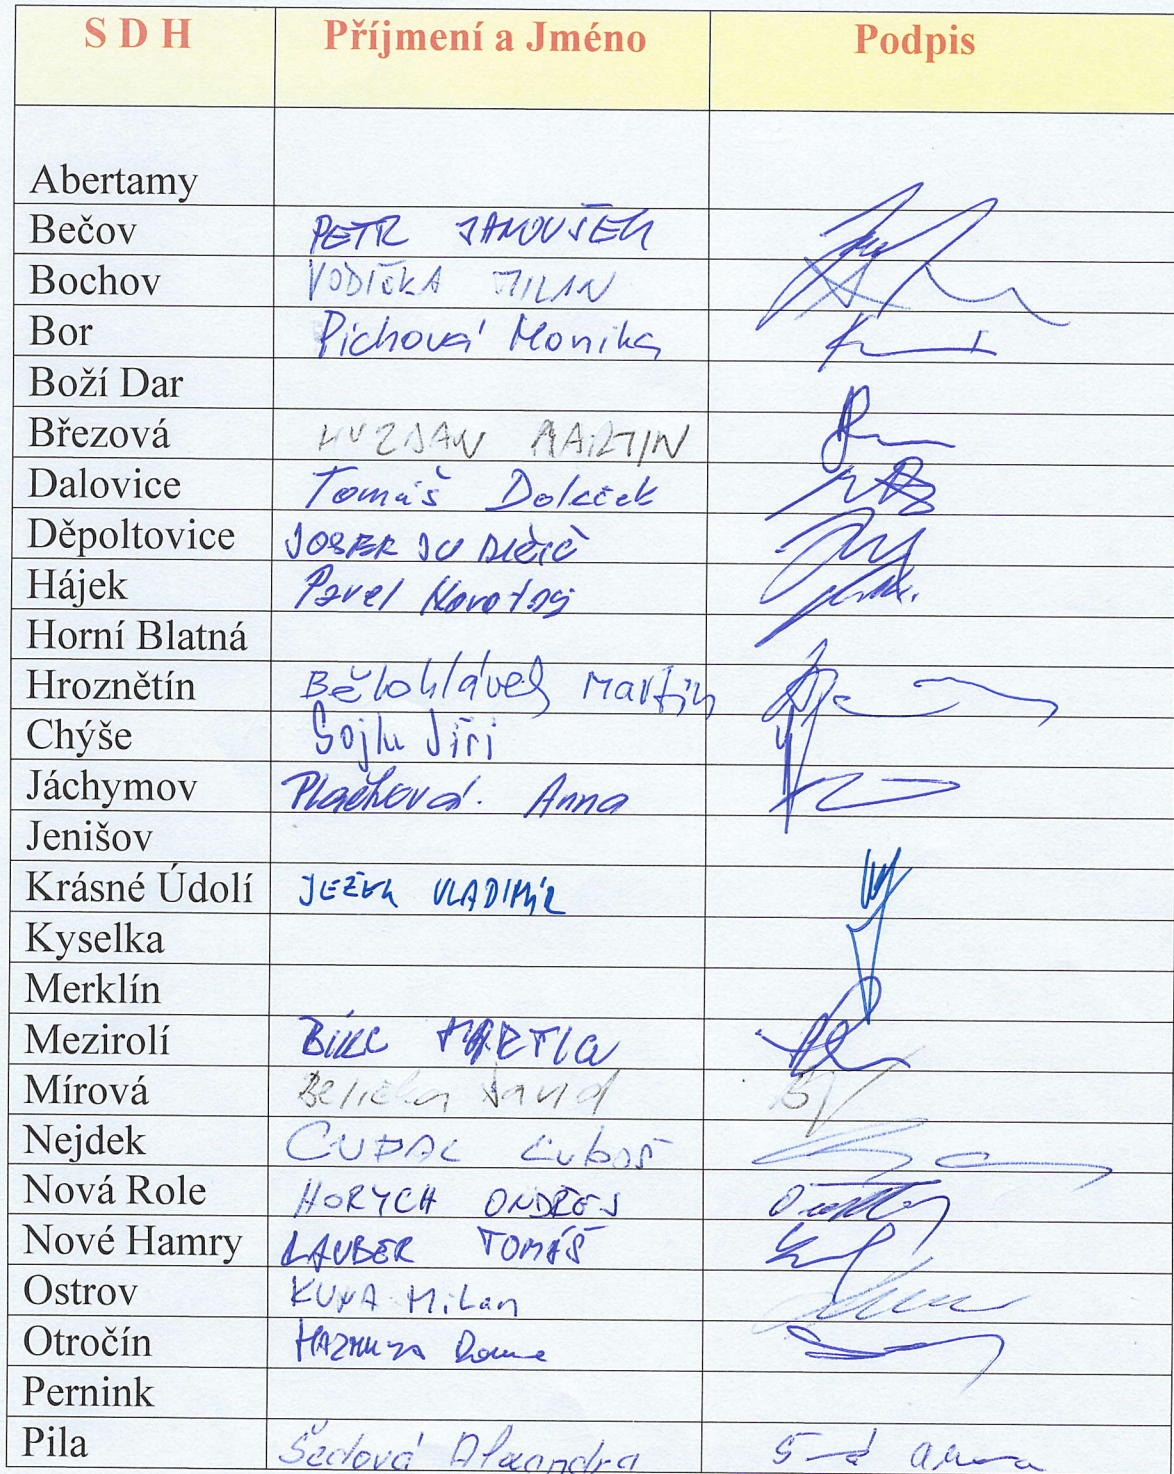 S D H Příjmení a Jméno Podpis
Abertamy
Bečov PETR JANOUŠEK
Bochov VODIČKA MILAN
Bor Pichová Monika
Boží Dar
Březová MARTIN
Dalovice Tomáš Doleček
Děpoltovice
Hájek Pavel Novotný
Horní Blatná
Hroznětín Bělohlávek Martin
Chýše Sojka Jiří
Jáchymov Anna
Jenišov
Krásné Údolí JEŽEK VLADIMÍR
Kyselka
Merklín
Mezirolí MARTIN
Mírová David
Nejdek CUDAL Luboš
Nová Role HORYCH ONDŘEJ
Nové Hamry LAUBER TOMÁŠ
Ostrov KUNA Milan
Otročín
Pernink
Pila Šedová Alexandra